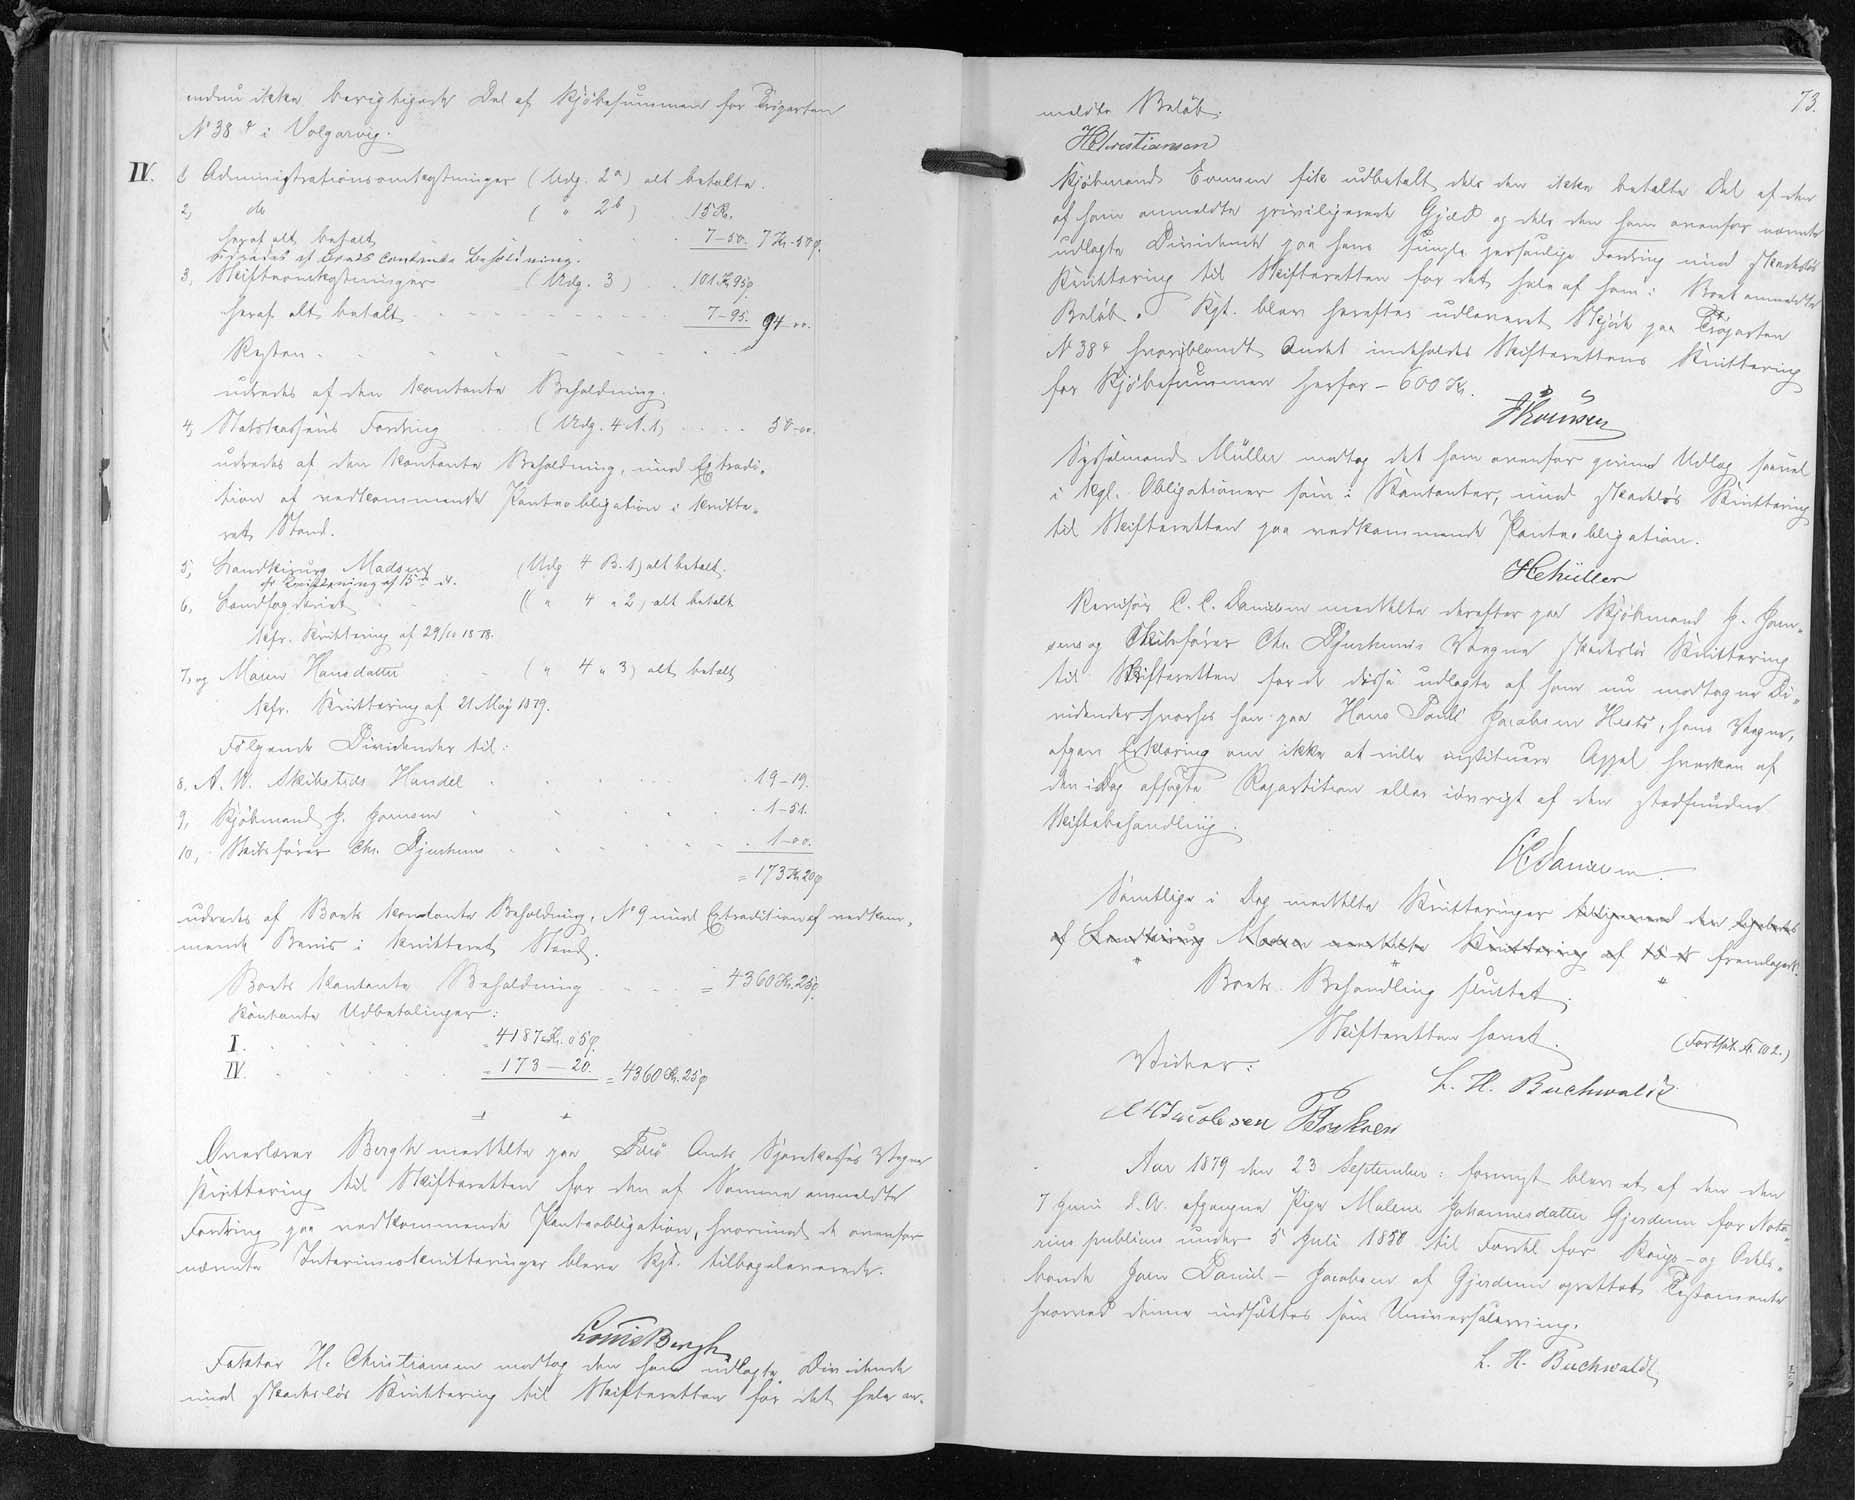 endnu ikke berigtigede Del af Kjöbesummen for Trögarten
No 38 d i Volgarvig.
IV. 1, Administrationsomkostninger (Udg. 2a) alt betalte.
2, do ( " 2b) . 15 Kr.
heraf alt betalt . . . 7-50. 7 Kr. 50 ø.
udredes af Boets contante Beholdning.
3, Skifteomkostninger (Udg. 3) . . 101 Kr. 95 ø
heraf alt betalt . . . 7-95. 94-00.
Resten
udredes af den kontante Beholdning.
4, Statskassens Fordring . . (Udg. 4 A. 1) . . . . 50-00.
udredes af den kontante Beholdning, mod Extradi-
tion af vedkommende Panteobligation i kvitte-
ret Stand.
5, Landkirurg Madsen (Udg 4 B. 1) alt betalt.
cfr Kvittering af 15de ds.
6, Landfogderiet ( " 4 " 2) alt betalt
kfr. Kvittering af 29/10 1878.
7, og Maren Hansdatter ( " 4 " 3) alt betalt
kfr. Kvittering af 21 Maj 1879.
Fölgende Dividender til:
8, A. W. Skibsteds Handel . . . . 19-19.
9, Kjöbmand J. Joensen . . . . 1-51.
10, Skibsförer Chr. Djurhuus . . . . 1-00.
= 173 Kr. 20 ø
udredes af Boets kontante Beholdning, No 9 mod Extradition af vedkom-
mende Bevis i kvitteret Stand.
Boets kontante Beholdning . . . . = 4360 Kr. 25 ø.
Kontante Udbetalinger:
I. . . . . 4187 Kr. 05 ø.
IV. . . . . = 173-20. = 4360 Kr. 25 ø
Overlærer Bergh meddelte paa Færö Amts Sparekasses Vegne
Kvittering til Skifteretten for den af Samme anmeldte
Fordring paa vedkommende Panteobligation, hvorimod de ovenfor
nævnte Interimskvitteringer bleve Rgt. tilbageleverede.
Louis Bergh
Faktor H. Christiansen modtog den ham udlagte Dividende
mod skadeslös Kvittering til Skifteretten for det hele an-
73.
meldte Belöb.
HChristiansen
Kjöbmand Eoensen fik udbetalt dels den ikke betalte Del af den
af ham anmeldte priviligerede Gjæld og dels den ham ovenfor nævnte
udlagte Dividende paa hans simple personlige Fordring mod skadeslös
Kvittering til Skifteretten for det hele af ham i Boet anmeldte
Belöb. Rgt. blev herefter udleveret Skjöde paa Trögarten
No 38 d hvoriblandt Andet indeholdes Skifterettens Kvittering
for Kjöbesummen herfor - 600 Kr.
Sysselmand Müller modtog det ham ovenfor givne Udlæg saavel
i kgl. Obligationer som i Kontanter, mod skadeslös Kvittering
til Skifteretten paa vedkommende Panteobligation.
HcMüller
Revisor C. C. Danielsen meddelte derefter paa Kjöbmand J. Joen-
sens og Skibsförer Chr. Djurhuus's Vegne skadeslös Kvittering
til Skifteretten for de disse udlagte af ham nu modtagne Di-
vidender hvorhos han paa Hans Pauli Jacobsen Hests, hans Vegne,
afgav Erklæring om ikke at ville instituere Appel hverken af
den i Dag afsagte Repartition eller iövrigt af den stedfundne
Skiftebehandling.
CCDanielsen.
Samtlige i Dag meddelte Kvitteringer tilligemed den
af Landkirurg Madsen meddelte Kvittering af 15 ds fremlagdes.
Boets Behandling sluttet.
Skifteretten hævet.
(Fortsat. Fol. 102.)
Vidner:
L. H. Buchwaldt
Jacobsen
Aar 1879 den 23 September: forevist blev et af den den
7 Juni d. A. afgangne Pige Malene Johannesdatter Gjerdum for Nota-
rius publicus under 5 Juli 1850 til Fordel for Kongs- og Odels-
bonde Joen Daniel Jacobsen af Gjerdum oprettet Testamente
hvorved denne indsættes som Universalarving.
L. H. Buchwaldt